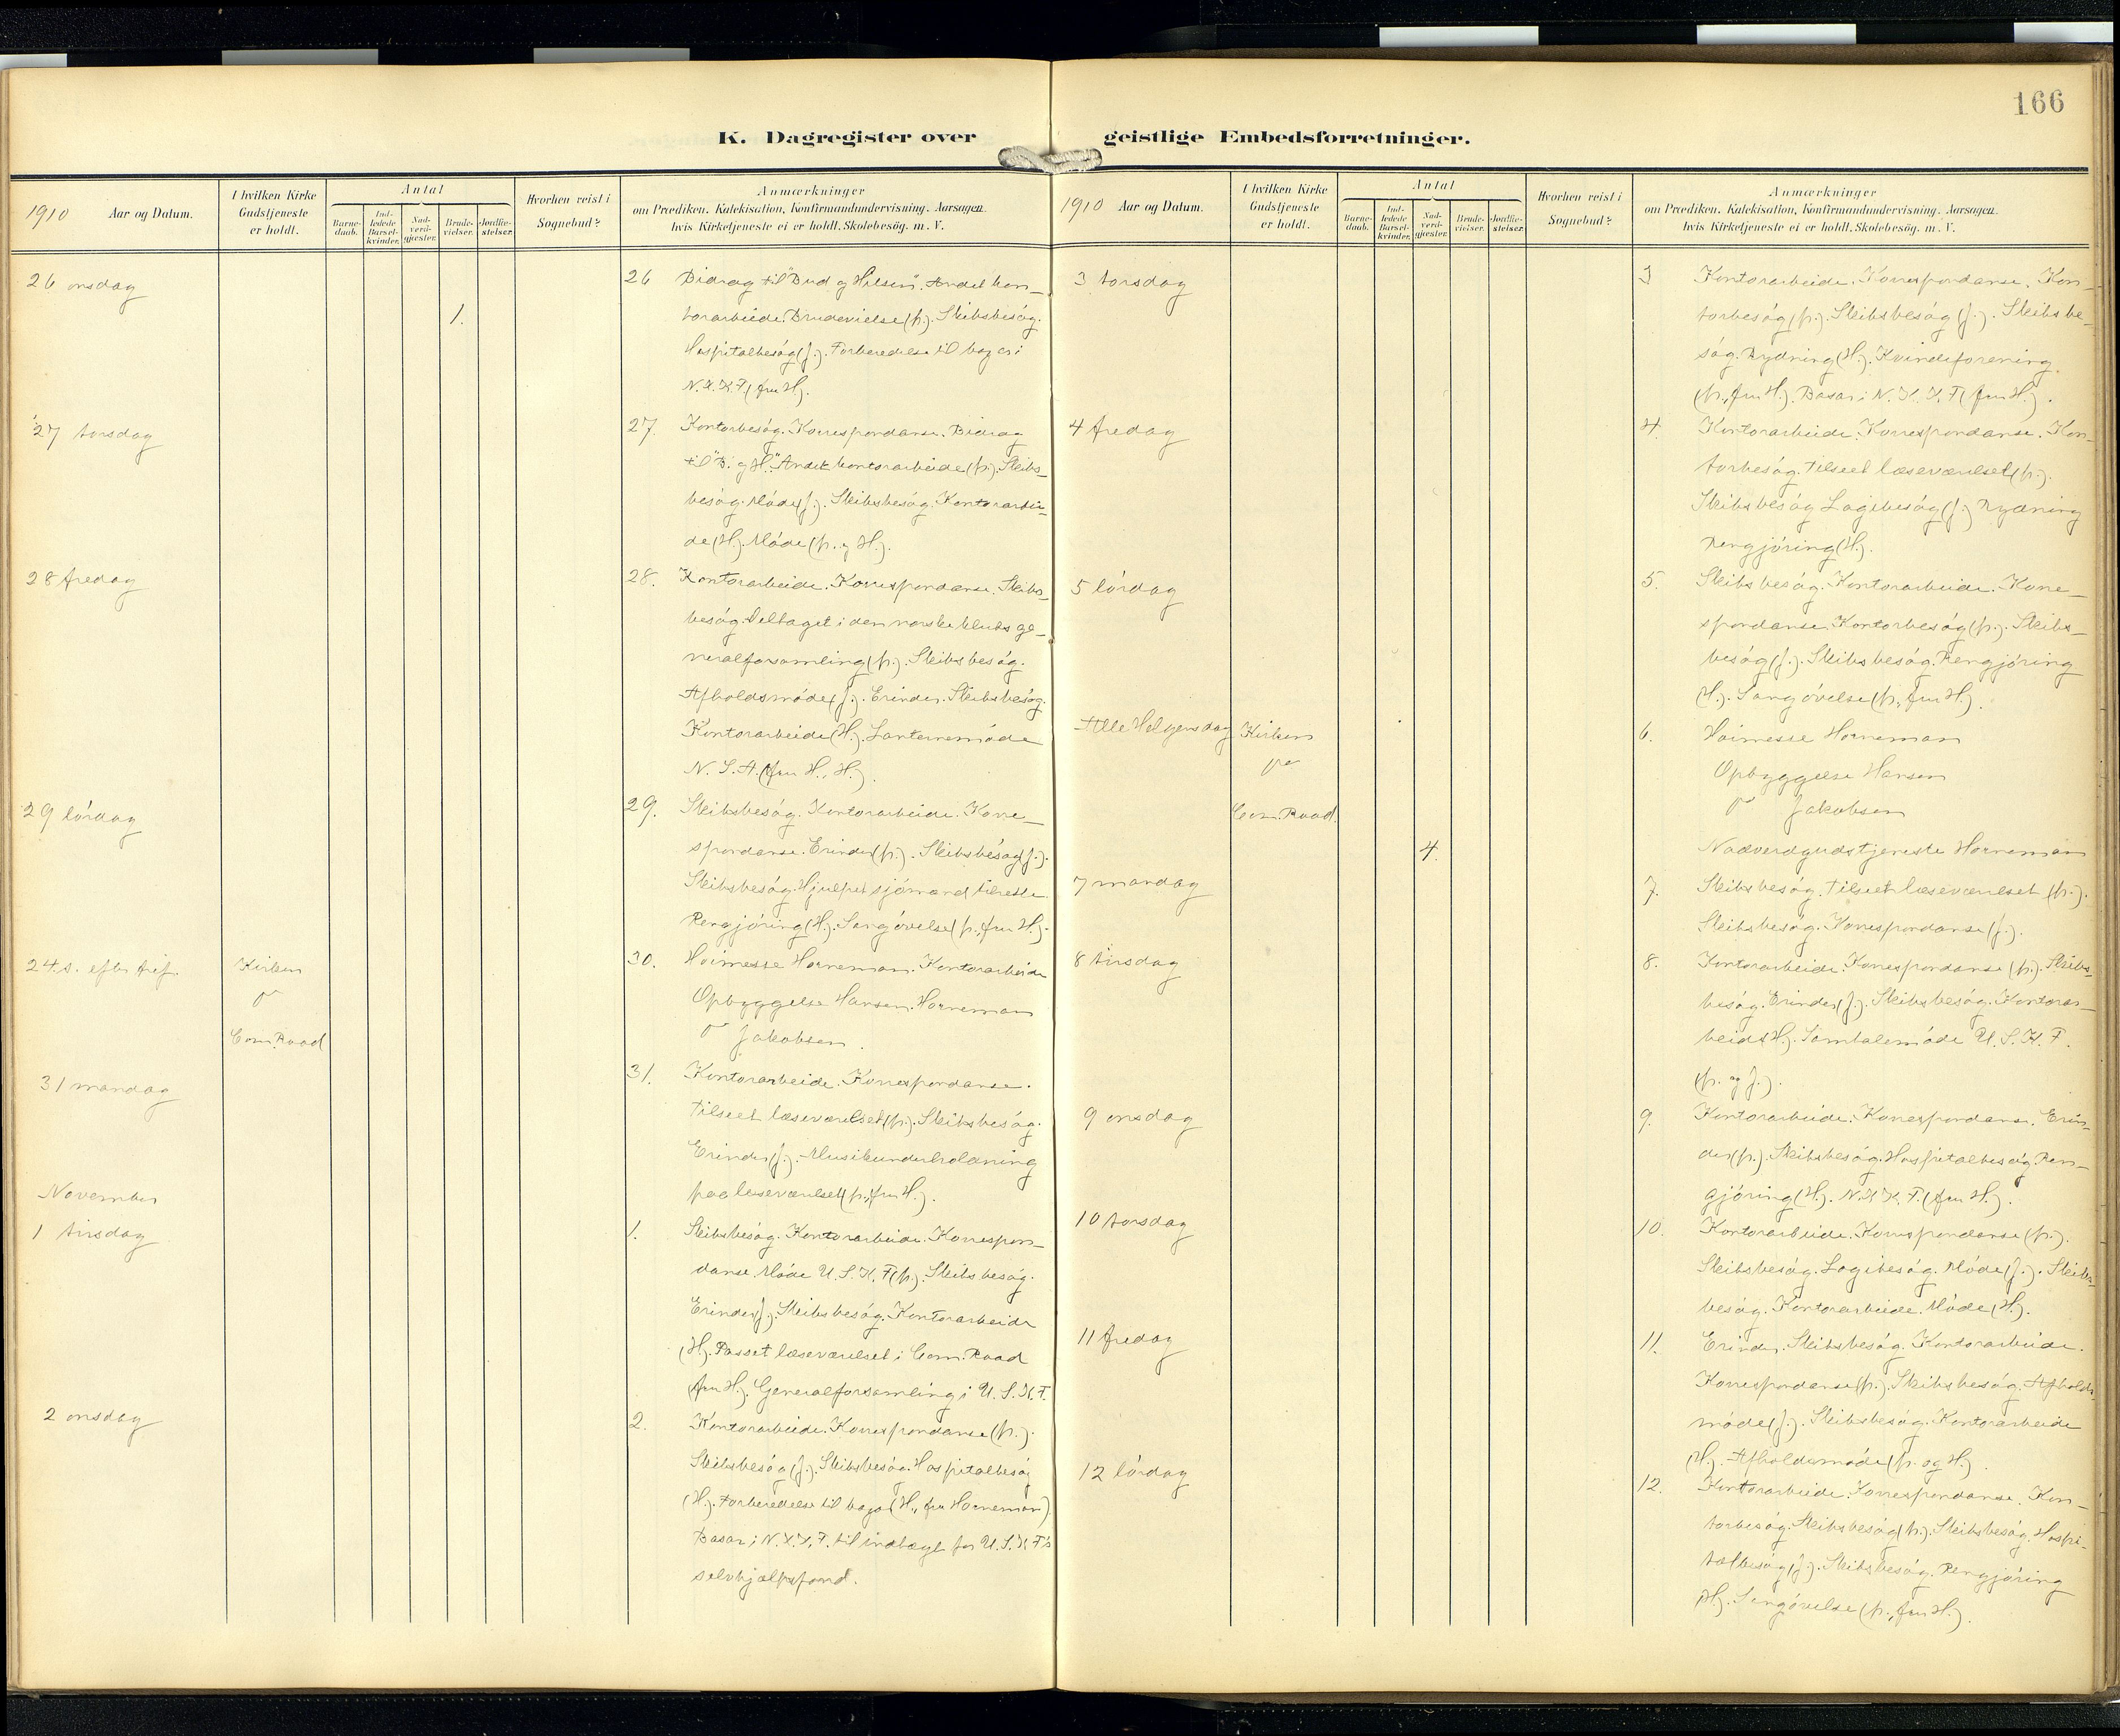 166
K. Dagregister over geistlige Embedsforretninger.
1910 Aar og Datum.
I hvilken Kirke Gudstjeneste er holdt.
Antal
Barne-daab.
Ind-ledede Barsel-kvinder.
Nad-verd-gjæster.
Brude-vielser.
Jordfæ-stelser.
Hvorhen reist i Sognebud?
Anmærkninger
om Prædiken, Katekisation, Konfirmandundervisning, Aarsagen,
hvis Kirketjeneste ei er holdt, Skolebesög. m. V.
26 onsdag
1.
26 Bidrag til "Bud og Hilsen". Andet kon-
torarbeide. Brudevielse (p.). Skibsbesøg.
Hospitalbesøg (J.). Forberedelse til bazar i
N.K.K.F. (fru H.).
27 torsdag
27. Kontorbesøg. Korrespondanse. Bidrag
til "B. og H." Andet kontorarbeide (p.). Skibs-
besøg. Møde (J.). Skibsbesøg. Kontorarbei-
de (H.). Møde (p. og H.).
28 fredag
28. Kontorarbeide. Korrespondanse. Skibs-
besøg. Deltaget i den norske klubs ge-
neralforsamling (p.). Skibsbesøg.
Afholdsmøde (J.). Erinder. Skibsbesøg.
Kontorarbeide (H.). Lanternemøde
N.S.A. (fru H., H.).
29 lördag
29. Skibsbesøg. Kontorarbeide. Korre-
spondanse. Erinder (p.). Skibsbesøg (J.).
Skibsbesøg. Hjulpet sjömænd tilrette.
Rengjöring (H.). Sangövelse (p., fru H.).
24. s. efter tref.
Kirken
Com. Road
30. Höimesse Horneman. Kontorarbeide
Opbyggelse Hansen. Horneman
Jakobsen.
31 mandag
31. Kontorarbeide. Korrespondanse.
Tilseet læseværelset (p.). Skibsbesøg.
Erinder (J.). Musikunderholdning
paa læseværelset (p., fru H.).
November
1 tirsdag
1. Skibsbesøg. Kontorarbeide. Korrespon-
danse. Møde U.S.K.F. (p.). Skibsbesøg.
Erinder (J.). Skibsbesøg. Kontorarbeide
(H.). Passet læseværelset i Com. Road
(fru H.). Generalforsamling i U.S.K.F.
2 onsdag
2. Kontorarbeide. Korrespondanse (p.).
Skibsbesøg (J.). Skibsbesøg. Hospitalbesøg
(H.). Forberedelse til bazar (H., fru Horneman).
Basar i N.K.K.F. til indtægt for U.S.K.F's
selvhjælpsfond.
1910 Aar og Datum.
I hvilken Kirke Gudstjeneste er holdt.
Antal
Barne-daab.
Ind-ledede Barsel-kvinder.
Nad-verd-gjæster.
Brude-vielser.
Jordfæ-stelser.
Hvorhen reist i Sognebud?
Anmærkninger
om Prædiken, Katekisation, Konfirmandundervisning, Aarsagen,
hvis Kirketjeneste ei er holdt, Skolebesög. m. V.
3 torsdag
3 Kontorarbeide. Korrespondanse. Kon-
torbesøg (p.). Skibsbesøg (J.). Skibsbe-
søg. Rydning (H.). Kvindeforening
(p., fru H.). Basar i N.K.K.F. (fru H.).
4 fredag
4. Kontorarbeide. Korrespondanse. Kon-
torbesøg. Tilseet læseværelset (p.).
Skibsbesøg Logibesøg (J.) Rydning
Rengjöring (H.).
5 lördag
5. Skibsbesøg. Kontorarbeide. Korre-
spondanse. Kontorbesøg (p.). Skibs-
besøg (J.). Skibsbesøg. Rengjöring
(H.). Sangövelse (p., fru H.).
Alle Helgensdag
Kirken
Com. Road.
4.
6. Höimesse Horneman
Opbyggelse Hansen
Jakobsen
Nadverdgudstjeneste Horneman
7 mandag
7. Skibsbesøg. Tilseet læseværelset (p.).
Skibsbesøg. Korrespondanse (J.).
8 tirsdag
8. Kontorarbeide. Korrespondanse (p.). Skibs-
besøg. Erinder (J.). Skibsbesøg. Kontorar-
beide (H.). Samtalemøde U.S.K.F.
(p. og J.).
9 onsdag
9. Kontorarbeide. Korrespondanse. Erin-
der (p.). Skibsbesøg. Hospitalbesøg. Ren-
gjöring (H.). N.K.K.F. (fru H.).
10 torsdag
10. Kontorarbeide. Korrespondanse (p.).
Skibsbesøg. Logibesøg. Møde (J.). Skibs-
besøg. Kontorarbeide. Møde (H.).
11 fredag
11. Erinder. Skibsbesøg. Kontorarbeide.
Korrespondanse (p.). Skibsbesøg. Afholds-
møde (J.). Skibsbesøg. Kontorarbeide
(H.). Afholdsmøde (p. og H.).
12 lördag
12. Kontorarbeide. Korrespondanse. Kon-
torbesøg. Skibsbesøg (p.). Skibsbesøg. Hospi-
talbesøg (J.). Skibsbesøg. Rengjöring
(H.). Sangövelse (p., fru H.).